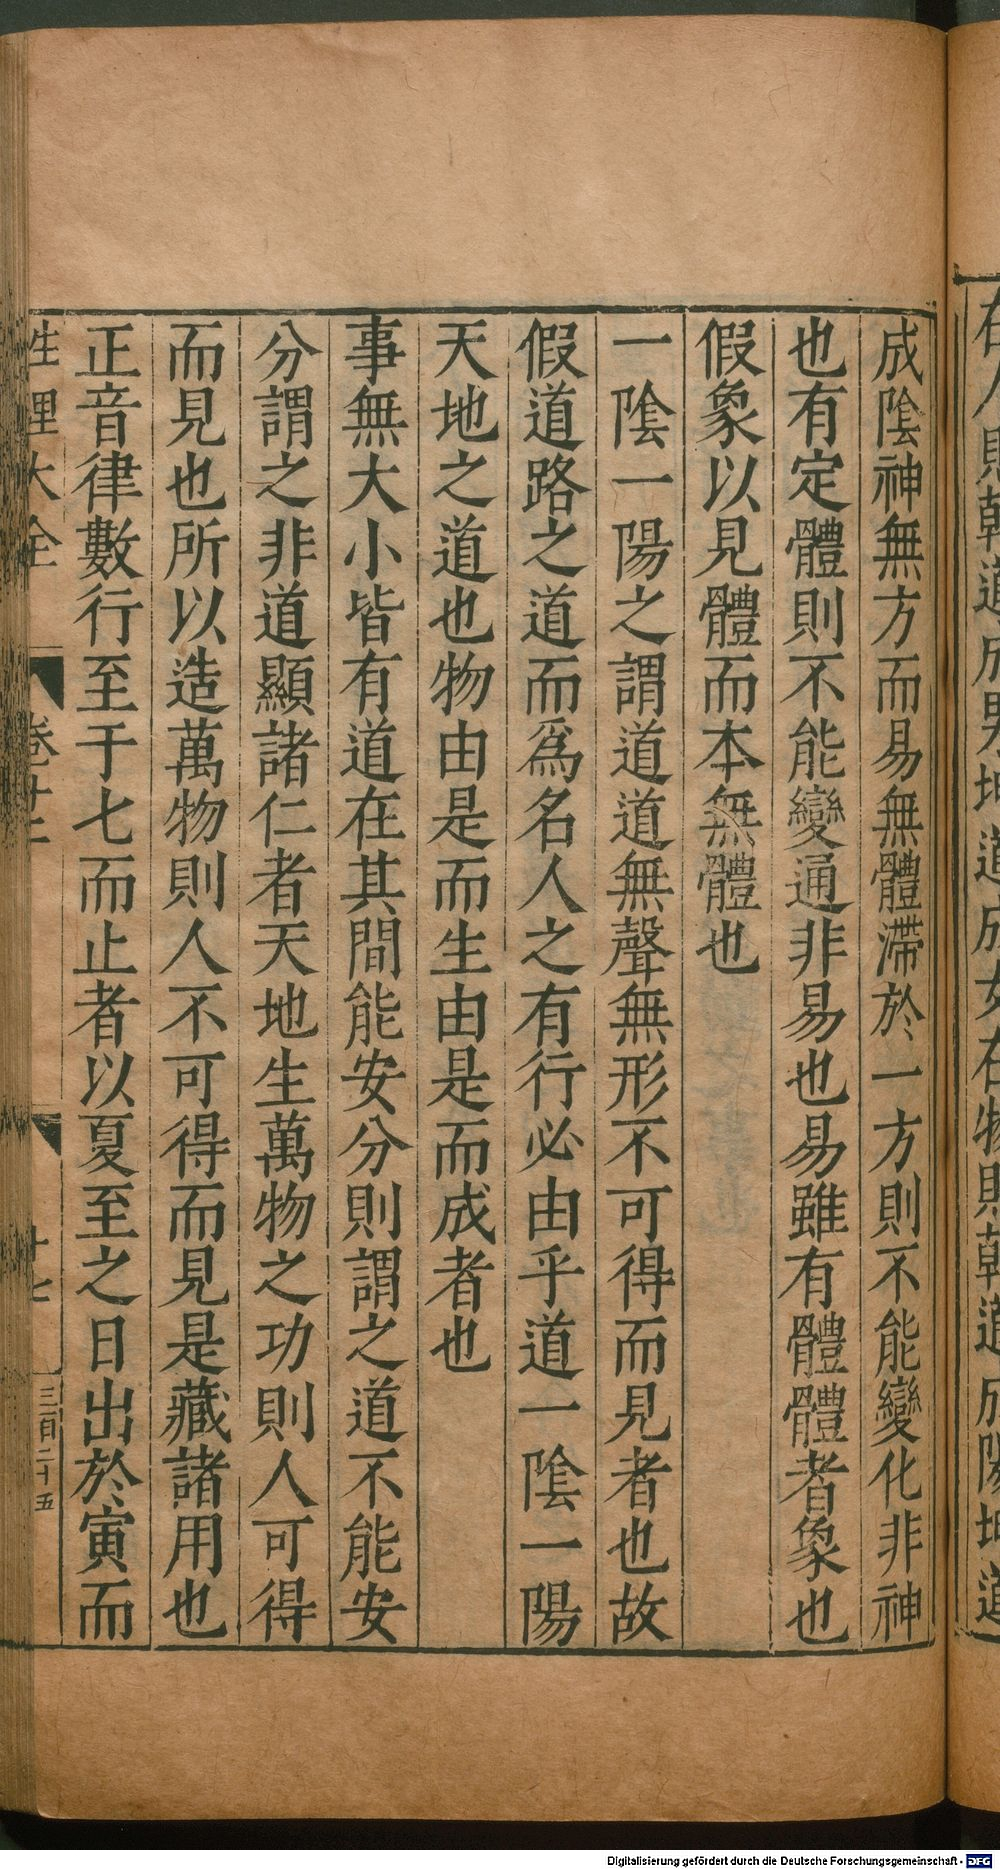 在人則乾道成男坤道成女在物則乾道成陽坤道
成隂神無方而易無體滯於一方則不能變化非神
也有定體則不能變通非易也易雖有體體者象也
假象以見體而本無體也
一隂一陽之謂道道無聲無形不可得而見者也故
假道路之道而爲名人之有行必由乎道一隂一陽
天地之道也物由是而生由是而成者也
事無大小皆有道在其間能安分則謂之道不能安
分謂之非道顯諸仁者天地生萬物之功則人可得
而見也所以造萬物則人不可得而見是藏諸用也
正音律數行至于七而止者以夏至之日出於寅而
性理大全 卷十二 十七 三百二十五
Digitalisierung gefördert durch die Deutsche Forschungsgemeinschaft - DFG